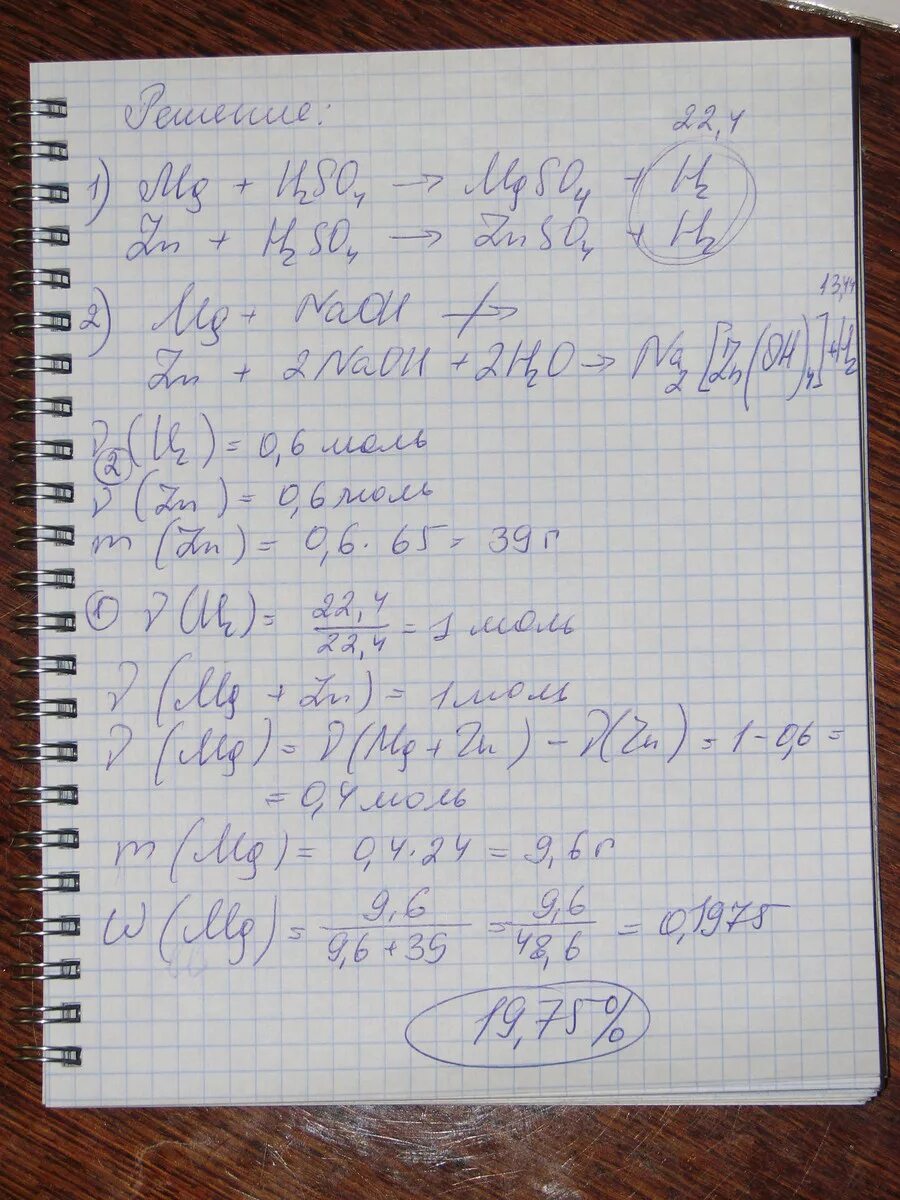 Решение:
22,4
1) Mg + H₂SO₄ → MgSO₄ + H₂
Zn + H₂SO₄ → ZnSO₄ + H₂
13,44
2) Mg + NaOH ↛
Zn + 2NaOH + 2H₂O → Na₂[Zn(OH)₄] + H₂
② ν(H₂) = 0,6 моль
ν(Zn) = 0,6 моль
m(Zn) = 0,6 · 65 = 39 г
① ν(H₂) = 22,4/22,4 = 1 моль
ν(Mg + Zn) = 1 моль
ν(Mg) = ν(Mg + Zn) - ν(Zn) = 1 - 0,6 =
= 0,4 моль
m(Mg) = 0,4 · 24 = 9,6 г
ω(Mg) = 9,6/(9,6 + 39) = 9,6/48,6 = 0,1975
19,75%